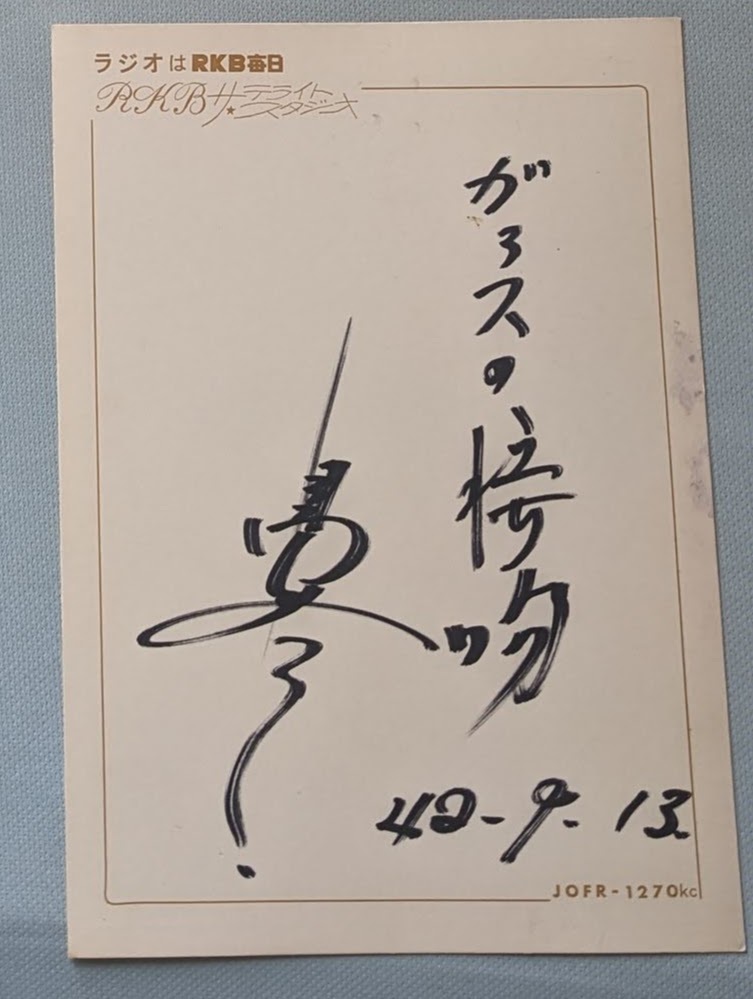 ラジオはRKB毎日
RKBサテライトスタジオ
ガラスの接吻
42-9.13.
JOFR-1270kc